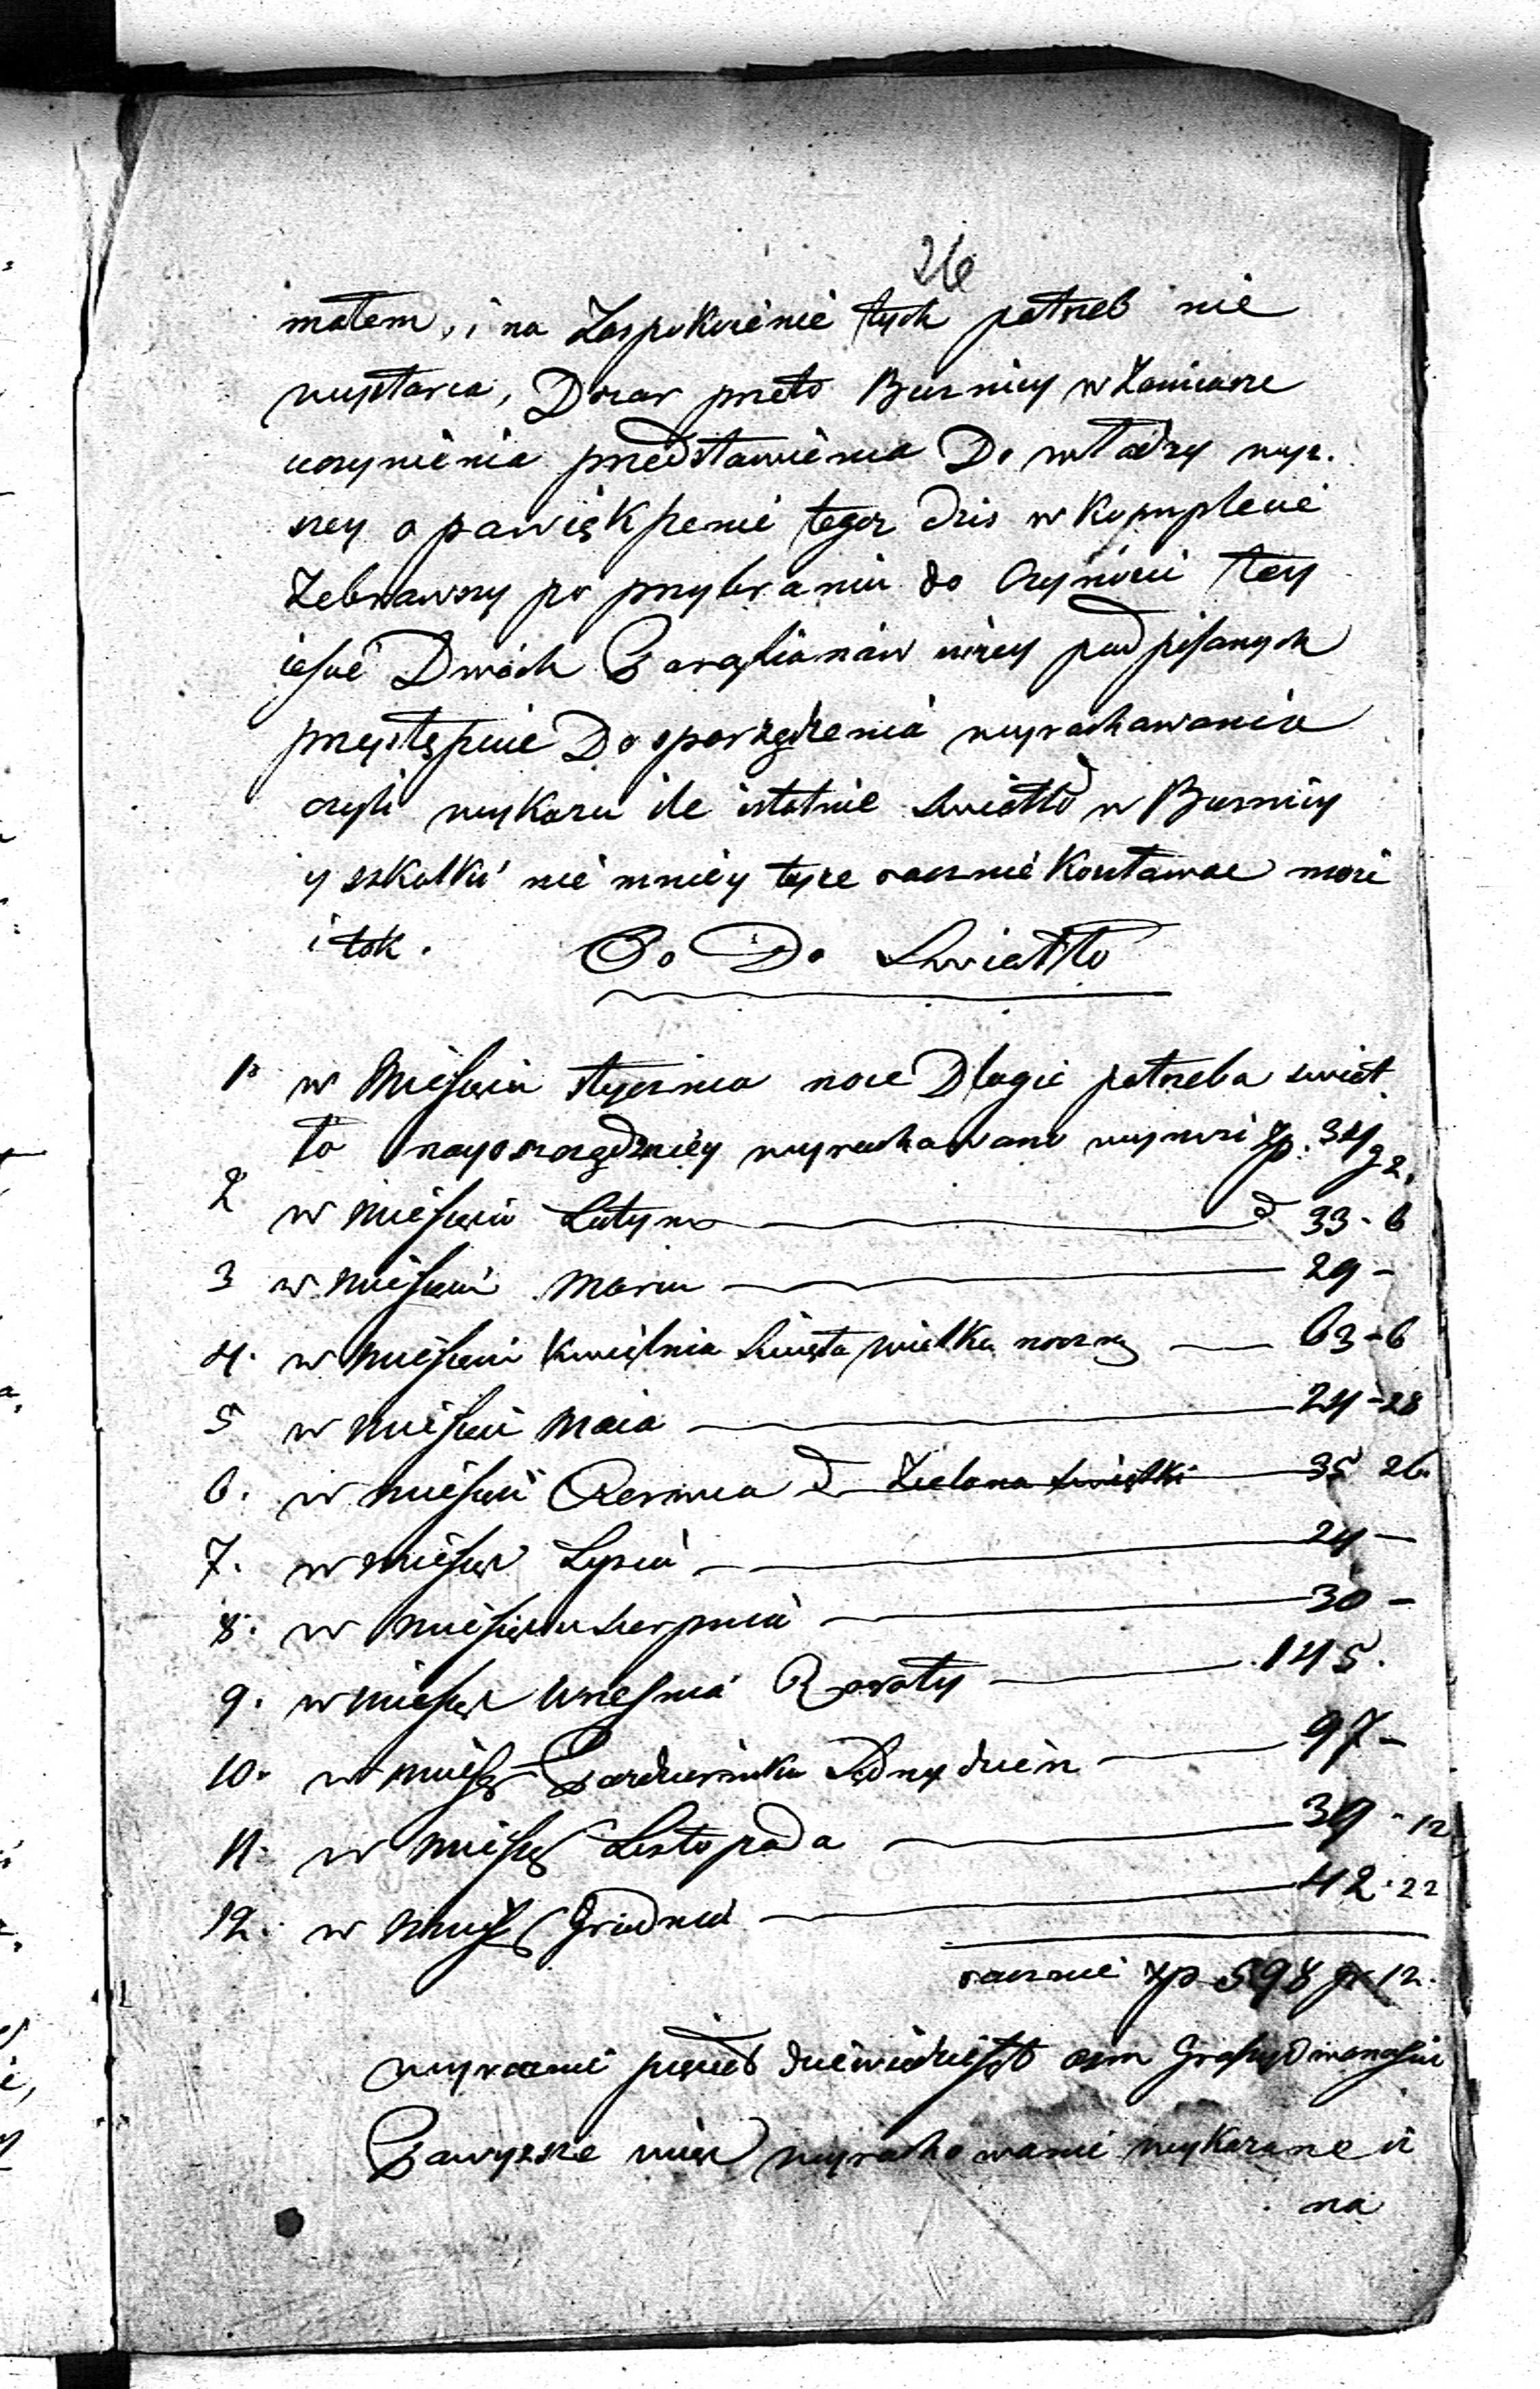 26
małem, i na Zaspokoienie tych potrzeb nie
wystarcza, Dozor przeto Bużnicy w Zamiarze
uczynienia przedstawienia Do władzy wyż-
szey o powiększenie tegoż dziś w Komplecie
Zebrawszy po przybraniu do Czynności tey
ieszcze Dwóch Parafianów niżey podpisanych
przystępuie Do sporządzenia wyrachowania
czyli wykazu ile istotnie Swiatło w Bużnicy
y szkołki nie mniey tyże rocznie Kosztować może
i tak. Co Do Swiatło
1o w Miesiącu Stycznia noce Długie potrzeba swiat
ło nayoszczędzniey wyrachowane wynosi Zp. 34 g 2.
2 w Miesiącu Lutym d 33 - 6
3 w Miesiącu Marcu 29 -
4. w Miesiącu Kwietnia Swięta wielka nocne 63 - 6
5 w Miesiącu Maia 24 - 28
6. w Miesiącu Czerwca d Zielone Swiątki 35 26.
7. w Miesiąc Lipca 24 -
8. w Miesiącu Sierpnia 30 -
9. w Miesiąc Wrzesnia 145.
10. w Miesiąc Pazdziernika Sądny dzień 97 -
11. w Miesiąc Listopada 39 - 12
12. w Miesiąc Grudnia 42 - 22
rocznie Zp 598 gr 12.
wyraznie pięćset dziewiędziesiąt osm Groszy dwanascie
Powyższe więc wyrachowanie wykazane
na